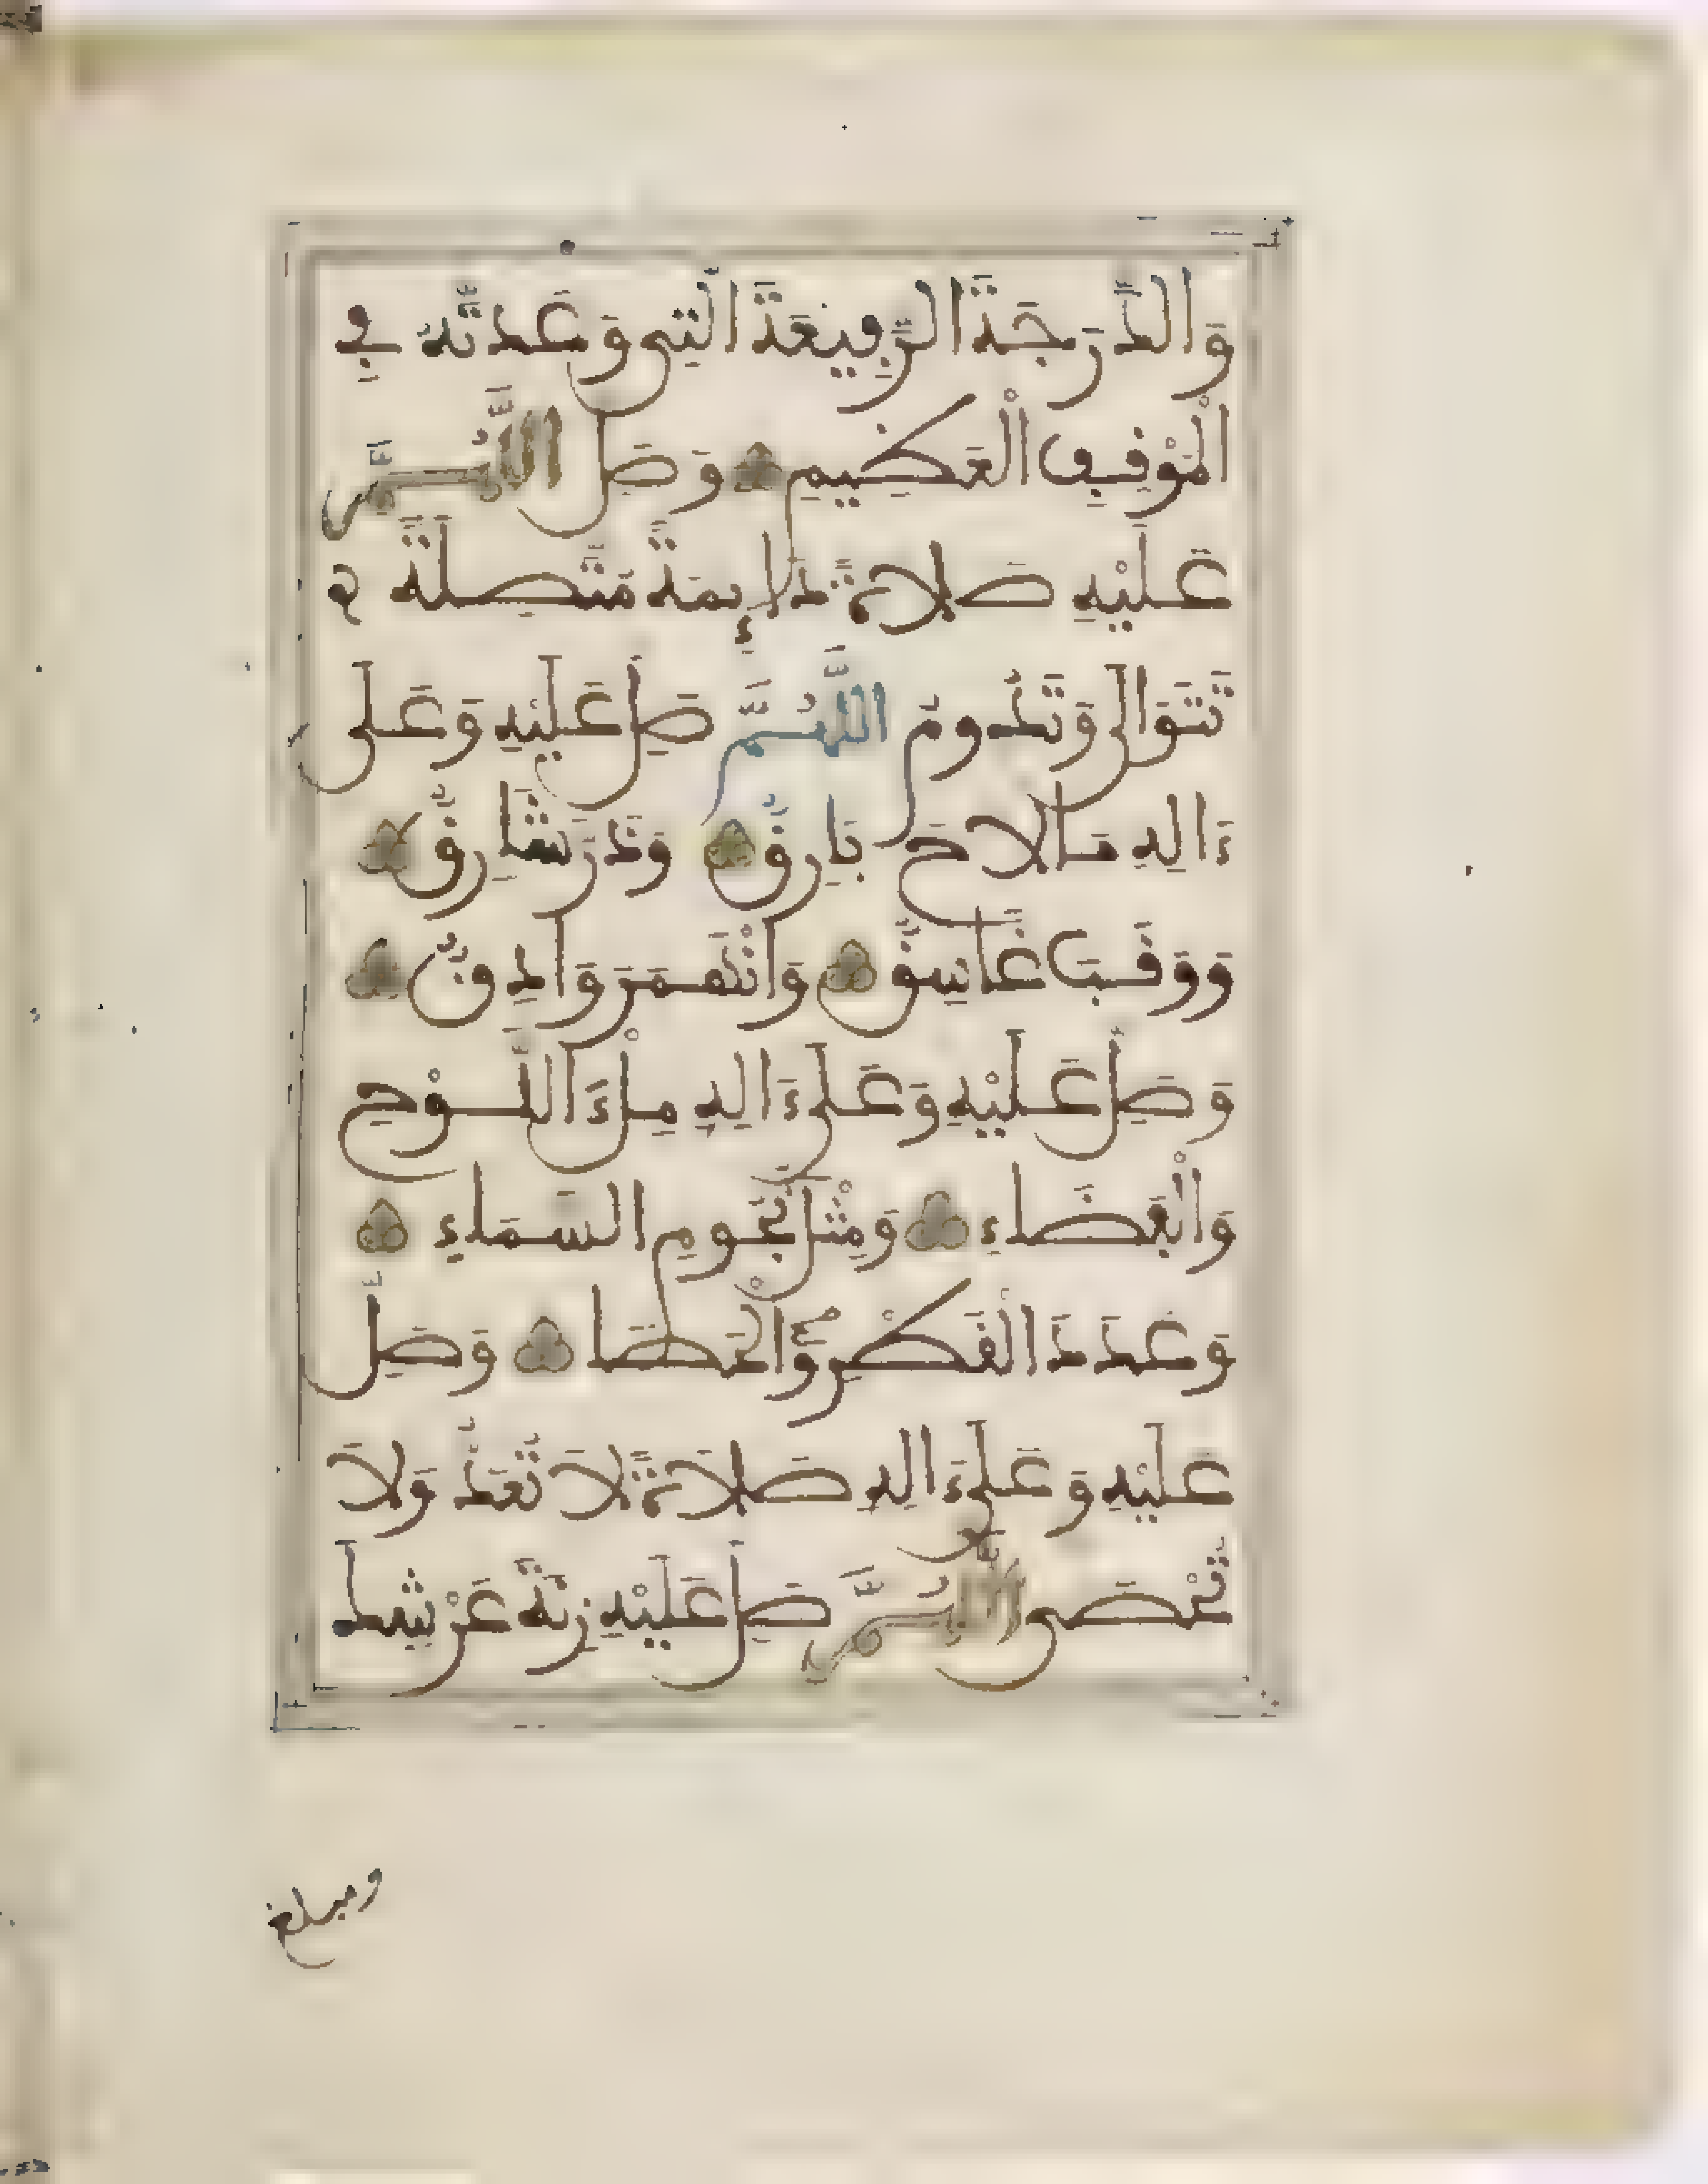 وَالدَّرَجَةَ الرَّفِيعَةَ الَّتِي وَعَدتَّهُ فِي
الْمَوْقِفِ الْعَظِيمِ وَصَلِّ اللَّهُمَّ
عَلَيْهِ صَلَاةً دَائِمَةً مُتَّصِلَةً
تَتَوَالَى وَتَدُومُ اللَّهُمَّ صَلِّ عَلَيْهِ وَعَلَى
ءَالِهِ مَا لَاحَ بَارِقٌ وَذَرَّ شَارِقٌ
وَوَقَبَ غَاسِقٌ وَانْهَمَرَ وَادِقٌ
وَصَلِّ عَلَيْهِ وَعَلَى ءَالِهِ مِلْءَ اللَّوْحِ
وَالْفَضَاءِ وَمِثْلَ نُجُومِ السَّمَاءِ
وَعَدَدَ الْقَطْرِ وَالْحَصَا وَصَلِّ
عَلَيْهِ وَعَلَى ءَالِهِ صَلَاةً لَا تُعَدُّ وَلَا
تُحْصَى اللَّهُمَّ صَلِّ عَلَيْهِ زِنَةَ عَرْشِكَ
ومبلغ